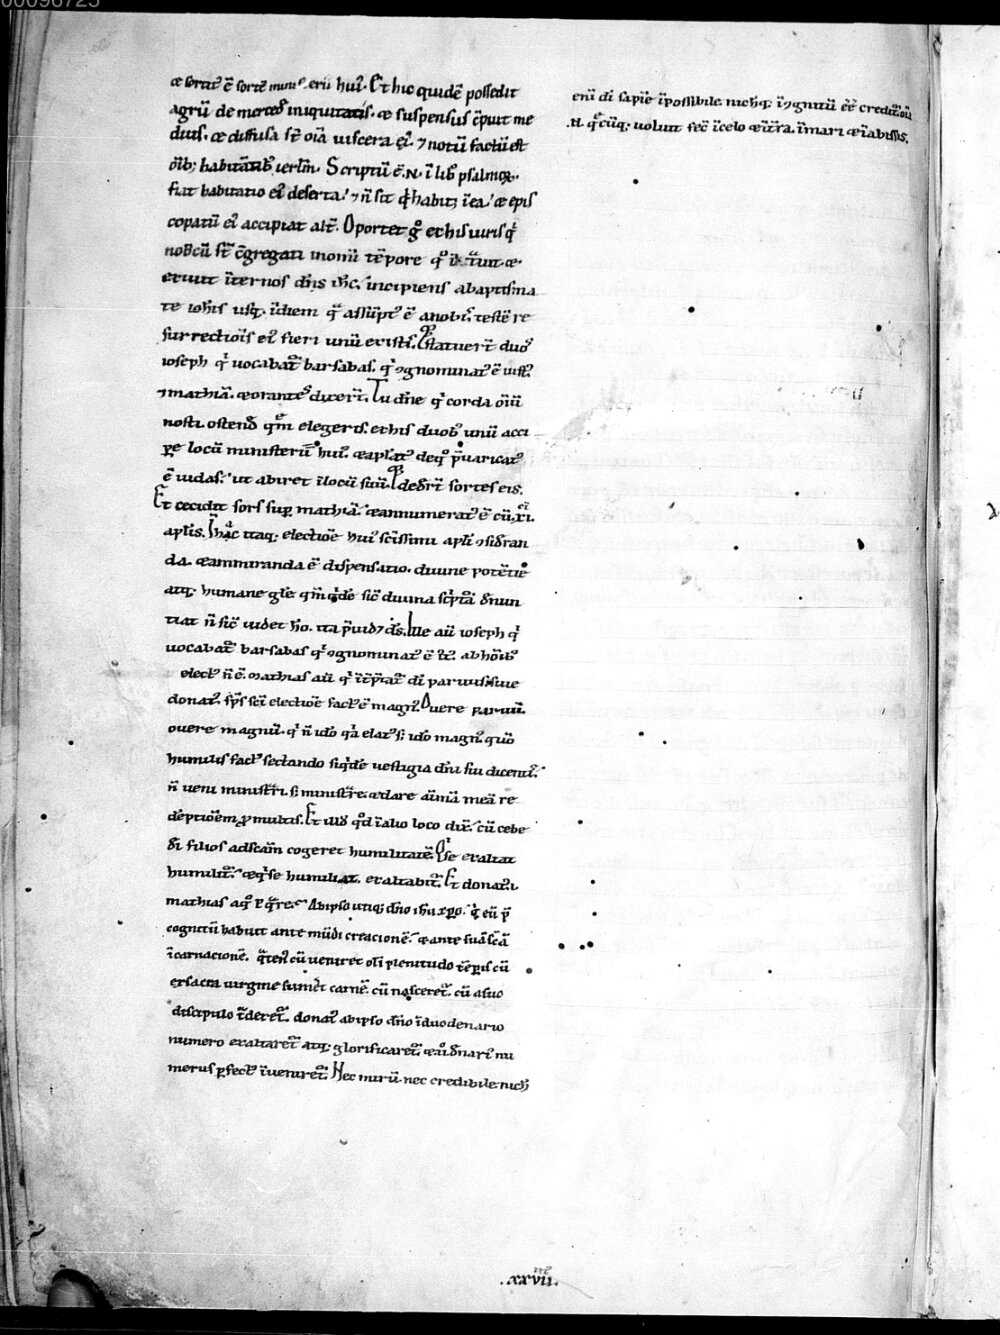 00096725
& sortit' ē sortē minist'erii hui'. Et hic quidē possedit
agrū de mercede iniquitatis. & suspensus crepuit me
dius. & diffusa st̄ oīa uiscera ei'. ⁊ notū factū est
oīb; habitantib' ierlm̄. Scriptū ē .N. ī lib̄ psalmoꝝ.
fiat habitatio ei' deserta. ⁊ n̄ sit q̄ habit; ī ea. & epis
copatū ei' accipiat alt̄. Oportet g° ex his uiris q'
nobcū st̄ c̄gregati in omi tēpore quo intrauit &
exiuit īter nos dn̄s ih̄c. incipiens a baptisma
te ioh̄is usq; ī diem q̄ assūpt' ē a nobis. testē re
surrectiōis ei' fieri unū ex istis. Et statuer̄t duos
ioseph q' uocabat' barsabas. q' ꝯgnominat' ē iust'.
⁊ mathiā. & orantes dixer̄t. Tu dn̄e q' corda oīū
nosti ostende quē elegeris. ex his duob' unū acci
pe locū ministerii hui'. & aplat' de quo p̄uaricat'
ē iudas. ut abiret ī locū suū. Et deder̄t sortes eis.
Et cecidit sors suꝑ mathiā. & annumerat' ē cū .xi.
aplis. In hac itaq; electiōe hui' sc̄issimi apli ꝯsideran
da. & ammiranda ē dispensatio. diuine potētie
atq; humane gl̄e. qm̄ quidē sic diuina sc̄ptā denun
tiat n̄ sic uidet hō. ita p̄uidet d̄s. Ille aū ioseph q'
uocabat' barsabas q' ꝯgnominat' ē iust'. ab hōīb'
elect' n̄ ē. Mathias aū q' īt̄p̄tat' dī paruus siue
donat'. sp̄s sc̄i electiōe fact' ē magn'. O uere paruū.
o uere magnū. q' n̄ ido q̄a elat' s; ido magn' quō
humilis fact' sectando siquidē uestigia dn̄i sui dicent'.
n̄ ueni ministrari s; ministrare. & dare aīmā meā re
dēptiōem ꝑ multis. Et illd̄ qd̄ ī alio loco dix̄. cū zebe
dei filios ad sc̄am cogeret humilitatē. Qui se exaltat
humiliat'. & qui se humiliat. exaltabit'. Et donat'.
mathias a quo ꝑ q̄re. Ab ipso utiq; dn̄o ih̄u xp̄o. q' eū p̄
cognitū habuit ante mūdi creacionē. & ante suā sc̄ā
īcarnacionē. q̄ten' cū ueniret olī plenitudo tēꝑis cū
ex sacra uirgine sumeret carnē. cū nasceret'. cū a suo
discipulo traderet'. donat' ab ipso dn̄o ī duodenario
numero exaltaret' atq; glorificaret'. & duodenari' nu
merus ꝑfect' īueniret'. Nec mirū. nec credibile. nich
enī dī sapīe īpossibile. nichq; īcognitū ēē credim'. oīa
.N. q̄cūq; uoluit fecit ī celo & ī t̄ra. ī mari & ī abissis.
.xxvii.